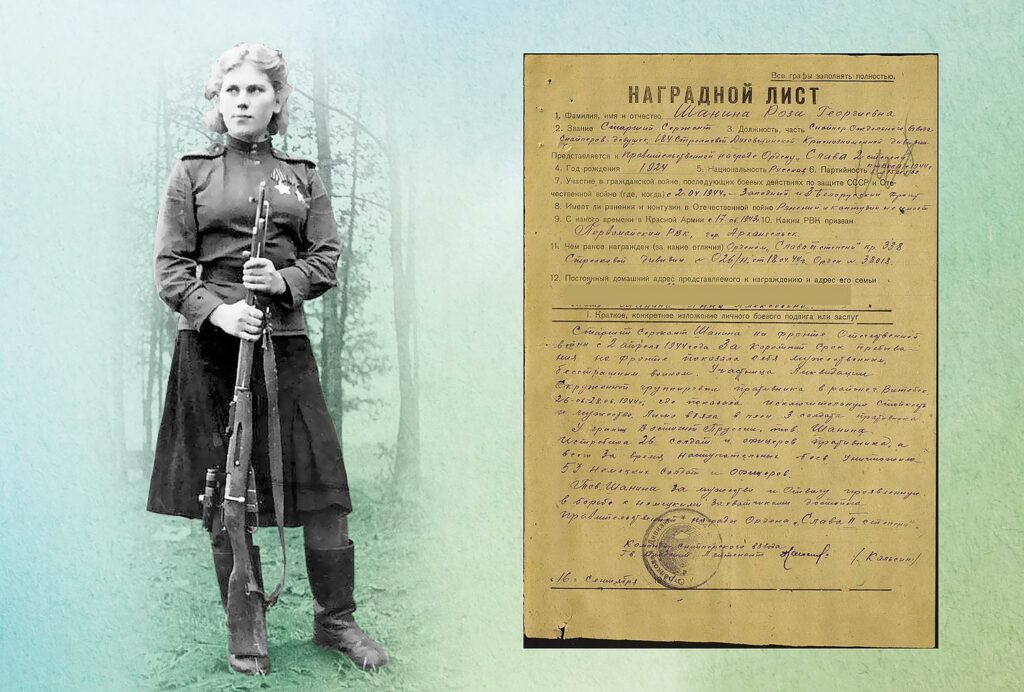 Все графы заполнять полностью.
НАГРАДНОЙ ЛИСТ
1. Фамилия, имя и отчество Шанина Роза Георгиевна
2. Звание Старший Сержант 3. Должность, часть Снайпер Отдельного взвода
Снайперов девушек, 184 Стрелковой Духовщинской Краснознаменной дивизии
Представляется к Правительственной награде Ордену „Слава 2 степени"
4. Год рождения 1924 5. Национальность Русская 6. Партийность
7. Участие в гражданской войне, последующих боевых действиях по защите СССР и Оте-
чественной войне (где, когда) с 2.04.1944г. – Западный и 3 Белорусский фронт
8. Имеет ли ранения и контузии в Отечественной войне Ранений и контузий не имеет
9. С какого времени в Красной Армии с 17.06.1943г. 10. Каким РВК призван
Первомайским РВК, гор. Архангельск.
11. Чем ранее награжден (за какие отличия) Орденом „Слава III степени" пр. 338
Стрелковой дивизии № 026/н, от 18.04.44г. Орден № 38018.
12. Постоянный домашний адрес представляемого к награждению и адрес его семьи
I. Краткое, конкретное изложение личного боевого подвига или заслуг
Старший Сержант Шанина на фронте Отечественной
войны с 2 апреля 1944 года. За короткий срок пребыва-
ния на фронте показала себя мужественным,
бесстрашным воином. Участница Ликвидации
Окруженной группировки противника в районе г. Витебск
26-06-28.06.1944г., где показала исключительную Стойкость
и мужество. Лично взяла в плен 3 солдата противника.
У границ Восточной Пруссии, тов. Шанина
Истребила 26 солдат и офицеров противника, а
всего за время наступательных боев уничтожила
53 Немецких солдат и Офицеров.
Тов. Шанина за мужество и Отвагу проявленную
в борьбе с немецкими захватчиками достойна
правительственной награды Ордена „Слава II степени".
Командир Снайперского взвода
Гв. Лейтенант
16 Сентября